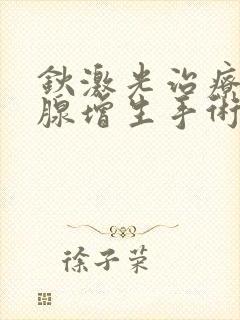 鈥激光治療
腺增生手術
徐子荣